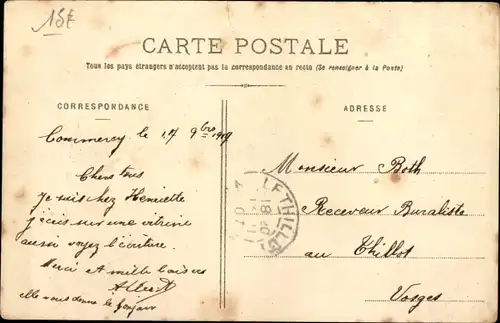 15€
CARTE POSTALE
Tous les pays étrangers n'acceptent pas la correspondance au recto (Se renseigner à la Poste)
CORRESPONDANCE
Commercy le 17 9bre 1909
Chers tous
Je suis chez Henriette
j'écris sur une vitrine
aussi voyez l'écriture.
Merci et mille baisers
Albert
elle vous donne le bonjour
LE THILLOT
18
ADRESSE
Monsieur Both
Receveur Buraliste
au Thillot
Vosges